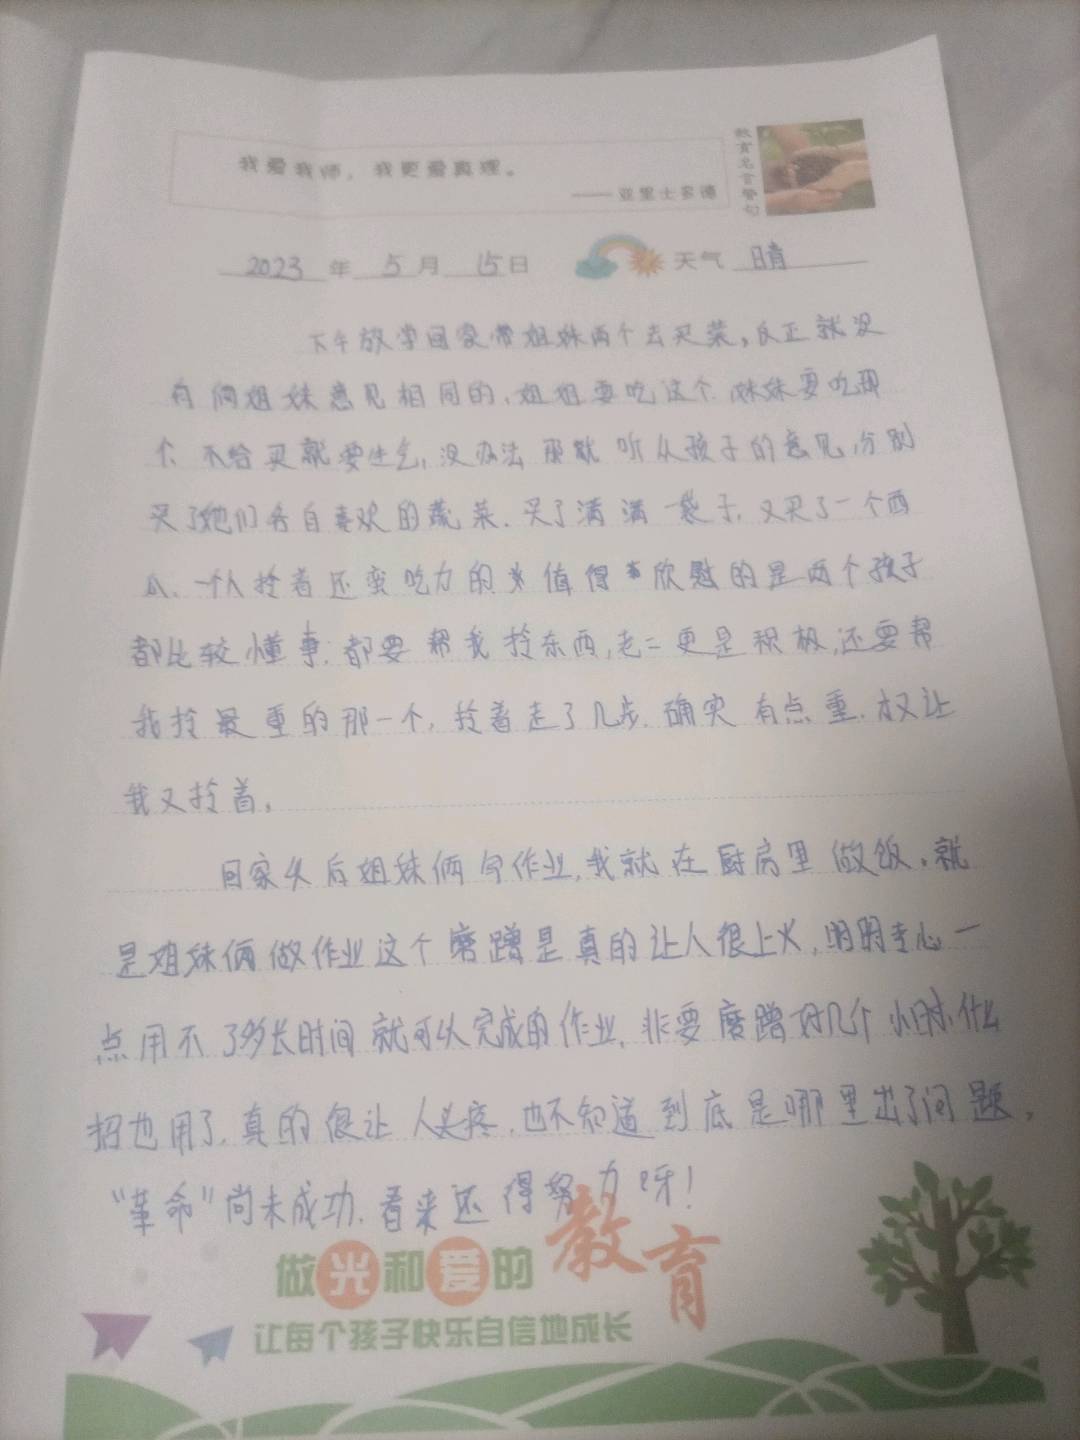 我爱我师，我更爱真理。
——亚里士多德
教育名言警句
2023年5月15日 天气 晴
下午放学回家带姐妹两个去买菜，反正就没
有俩姐妹意见相同的，姐姐要吃这个，妹妹要吃那
个，不给买就要生气，没办法那就听从孩子的意见，分别
买了她们各自喜欢的蔬菜，买了满满一袋子，又买了一个西
瓜，一个人拎着还蛮吃力的，值得欣慰的是两个孩子
都比较懂事，都要帮我拎东西，老二更是积极，还要帮
我拎最重的那一个，拎着走了几步，确实有点重，才又让
我又拎着。
回家以后姐妹俩写作业，我就在厨房里做饭。就
是姐妹俩做作业这个磨蹭是真的让人很上火，明明专心一
点用不了多长时间就可以完成的作业，非要磨蹭好几个小时，什么
招也用了，真的很让人头疼，也不知道到底是哪里出了问题，
“革命”尚未成功，看来还得努力呀！
做光和爱的教育
让每个孩子快乐自信地成长